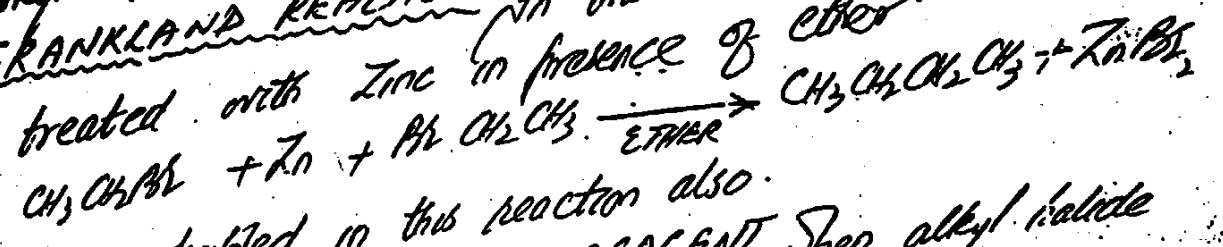 FRANKLAND
treated with Zinc in presence of ether
CH3 CH2Br + Zn + Br CH2 CH3 ETHER → CH3 CH2 CH2 CH3 + ZnBr2
in this reaction also.
alkyl halide